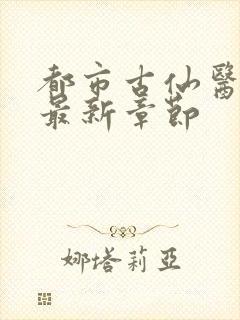 都市古仙醫
最新章節
娜塔莉亞